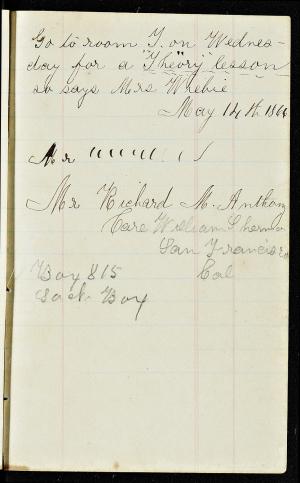 Go to room I. on Wednes-
day for a "Theory" lesson
so says Mrs
May 14th
Mr
Mr Richard M. Anthony
Care William Sherman
San Francisco
Cal
Box 815
Sack Box